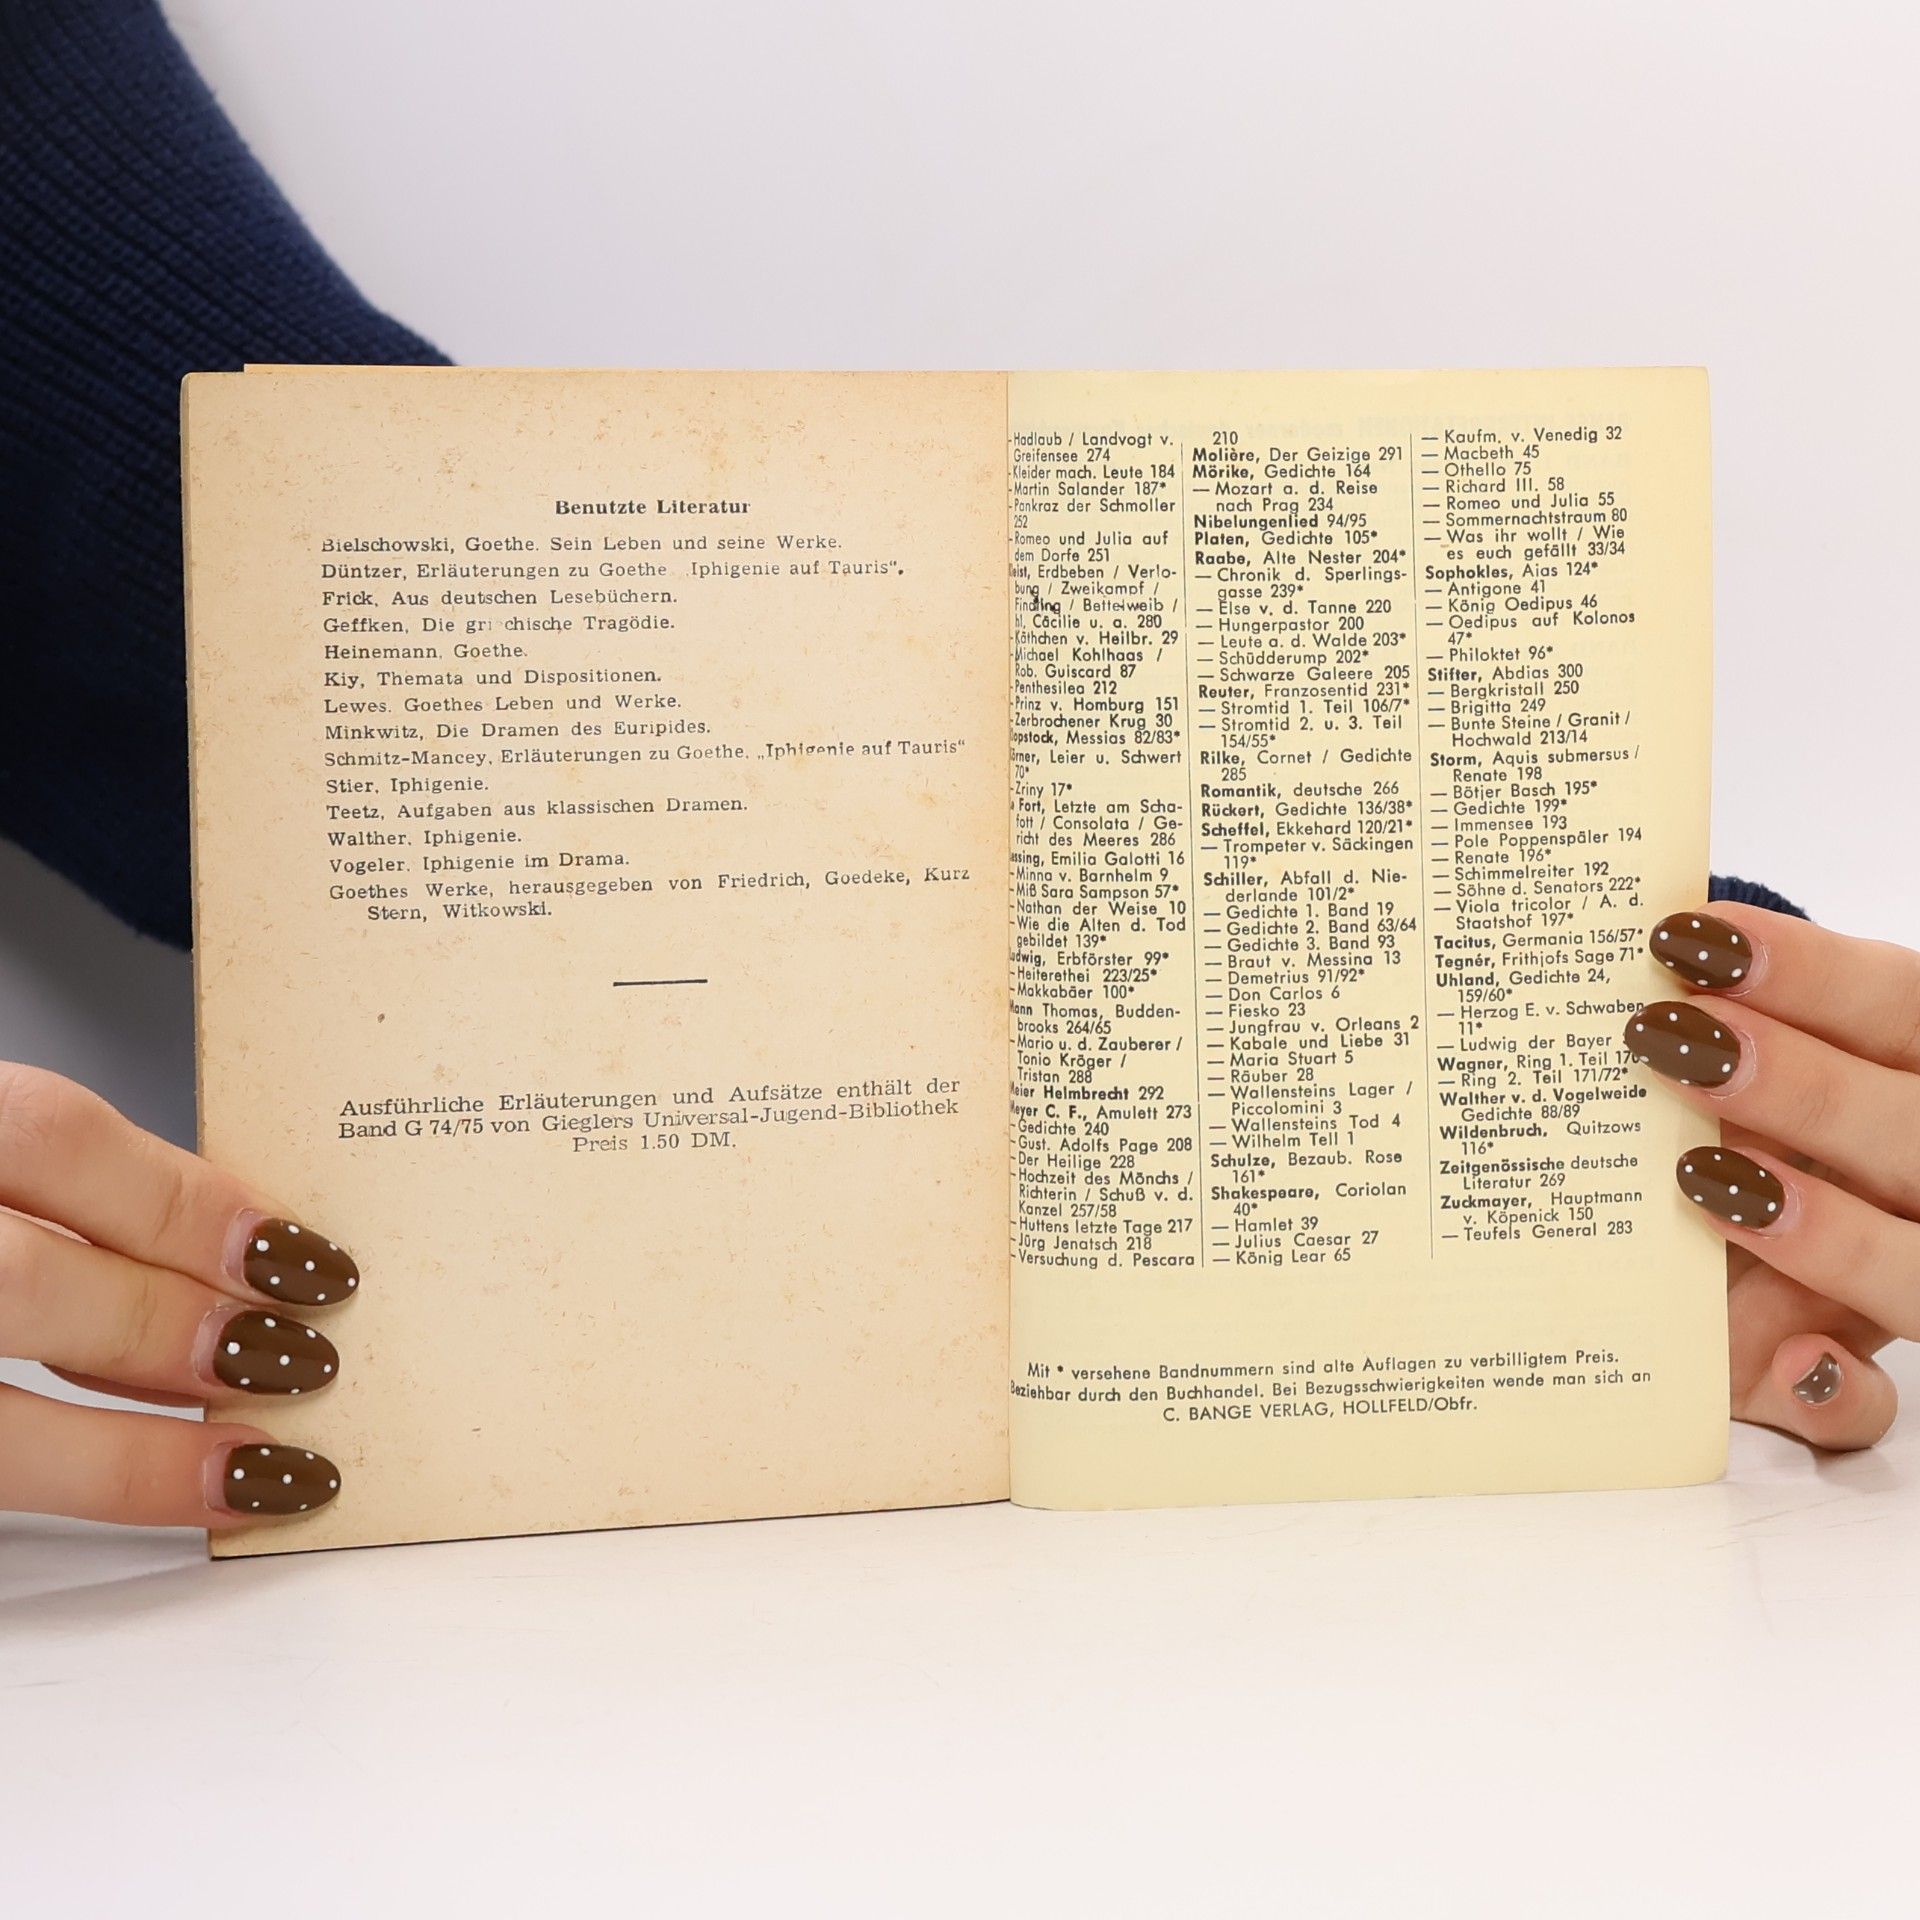 Benutzte Literatur
Bielschowski, Goethe. Sein Leben und seine Werke.
Düntzer, Erläuterungen zu Goethe „Iphigenie auf Tauris“.
Frick, Aus deutschen Lesebüchern.
Geffken, Die gri chische Tragödie.
Heinemann, Goethe.
Kiy, Themata und Dispositionen.
Lewes. Goethes Leben und Werke.
Minkwitz, Die Dramen des Euripides.
Schmitz-Mancey, Erläuterungen zu Goethe, „Iphigenie auf Tauris“
Stier, Iphigenie.
Teetz, Aufgaben aus klassischen Dramen.
Walther, Iphigenie.
Vogeler, Iphigenie im Drama.
Goethes Werke, herausgegeben von Friedrich, Goedeke, Kurz
Stern, Witkowski.
Ausführliche Erläuterungen und Aufsätze enthält der
Band G 74/75 von Gieglers Universal-Jugend-Bibliothek
Preis 1.50 DM.
- Hadlaub / Landvogt v.
Greifensee 274
- Kleider mach. Leute 184
- Martin Salander 187*
- Pankraz der Schmoller
252
- Romeo und Julia auf
dem Dorfe 251
Erdbeben / Verlo-
bung / Zweikampf /
Findling / Bettelweib /
hl. Cäcilie u. a. 280
- Käthchen v. Heilbr. 29
- Michael Kohlhaas /
Rob. Guiscard 87
- Penthesilea 212
- Prinz v. Homburg 151
- Zerbrochener Krug 30
Messias 82/83*
Leier u. Schwert
70*
- Zriny 17*
Fort, Letzte am Scha-
fott / Consolata / Ge-
richt des Meeres 286
Emilia Galotti 16
- Minna v. Barnhelm 9
- Miß Sara Sampson 57*
- Nathan der Weise 10
- Wie die Alten d. Tod
gebildet 139*
Erbförster 99*
- Heiterethei 223/25*
- Makkabäer 100*
Mann Thomas, Budden-
brooks 264/65
- Mario u. d. Zauberer /
Tonio Kröger /
Tristan 288
Meier Helmbrecht 292
Meyer C. F., Amulett 273
- Gedichte 240
- Gust. Adolfs Page 208
- Der Heilige 228
- Hochzeit des Mönchs /
Richterin / Schuß v. d.
Kanzel 257/58
- Huttens letzte Tage 217
- Jürg Jenatsch 218
- Versuchung d. Pescara
210
Molière, Der Geizige 291
Mörike, Gedichte 164
— Mozart a. d. Reise
nach Prag 234
Nibelungenlied 94/95
Platen, Gedichte 105*
Raabe, Alte Nester 204*
— Chronik d. Sperlings-
gasse 239*
— Else v. d. Tanne 220
— Hungerpastor 200
— Leute a. d. Walde 203*
— Schüdderump 202*
— Schwarze Galeere 205
Reuter, Franzosentid 231*
— Stromtid 1. Teil 106/7*
— Stromtid 2. u. 3. Teil
154/55*
Rilke, Cornet / Gedichte
285
Romantik, deutsche 266
Rückert, Gedichte 136/38*
Scheffel, Ekkehard 120/21*
— Trompeter v. Säckingen
119*
Schiller, Abfall d. Nie-
derlande 101/2*
— Gedichte 1. Band 19
— Gedichte 2. Band 63/64
— Gedichte 3. Band 93
— Braut v. Messina 13
— Demetrius 91/92*
— Don Carlos 6
— Fiesko 23
— Jungfrau v. Orleans 2
— Kabale und Liebe 31
— Maria Stuart 5
— Räuber 28
— Wallensteins Lager /
Piccolomini 3
— Wallensteins Tod 4
— Wilhelm Tell 1
Schulze, Bezaub. Rose
161*
Shakespeare, Coriolan
40*
— Hamlet 39
— Julius Caesar 27
— König Lear 65
— Kaufm. v. Venedig 32
— Macbeth 45
— Othello 75
— Richard III. 58
— Romeo und Julia 55
— Sommernachtstraum 80
— Was ihr wollt / Wie
es euch gefällt 33/34
Sophokles, Aias 124*
— Antigone 41
— König Oedipus 46
— Oedipus auf Kolonos
47*
— Philoktet 96*
Stifter, Abdias 300
— Bergkristall 250
— Brigitta 249
— Bunte Steine / Granit /
Hochwald 213/14
Storm, Aquis submersus /
Renate 198
— Bötjer Basch 195*
— Gedichte 199*
— Immensee 193
— Pole Poppenspäler 194
— Renate 196*
— Schimmelreiter 192
— Söhne d. Senators 222*
— Viola tricolor / A. d.
Staatshof 197*
Tacitus, Germania 156/57*
Tegnér, Frithjofs Sage 71*
Uhland, Gedichte 24,
159/60*
— Herzog E. v. Schwaben
11*
— Ludwig der Bayer
Wagner, Ring 1. Teil
— Ring 2. Teil 171/72*
Walther v. d. Vogelweide
Gedichte 88/89
Wildenbruch, Quitzows
116*
Zeitgenössische deutsche
Literatur 269
Zuckmayer, Hauptmann
v. Köpenick 150
— Teufels General 283
Mit * versehene Bandnummern sind alte Auflagen zu verbilligtem Preis.
Beziehbar durch den Buchhandel. Bei Bezugsschwierigkeiten wende man sich an
C. BANGE VERLAG, HOLLFELD/Obfr.